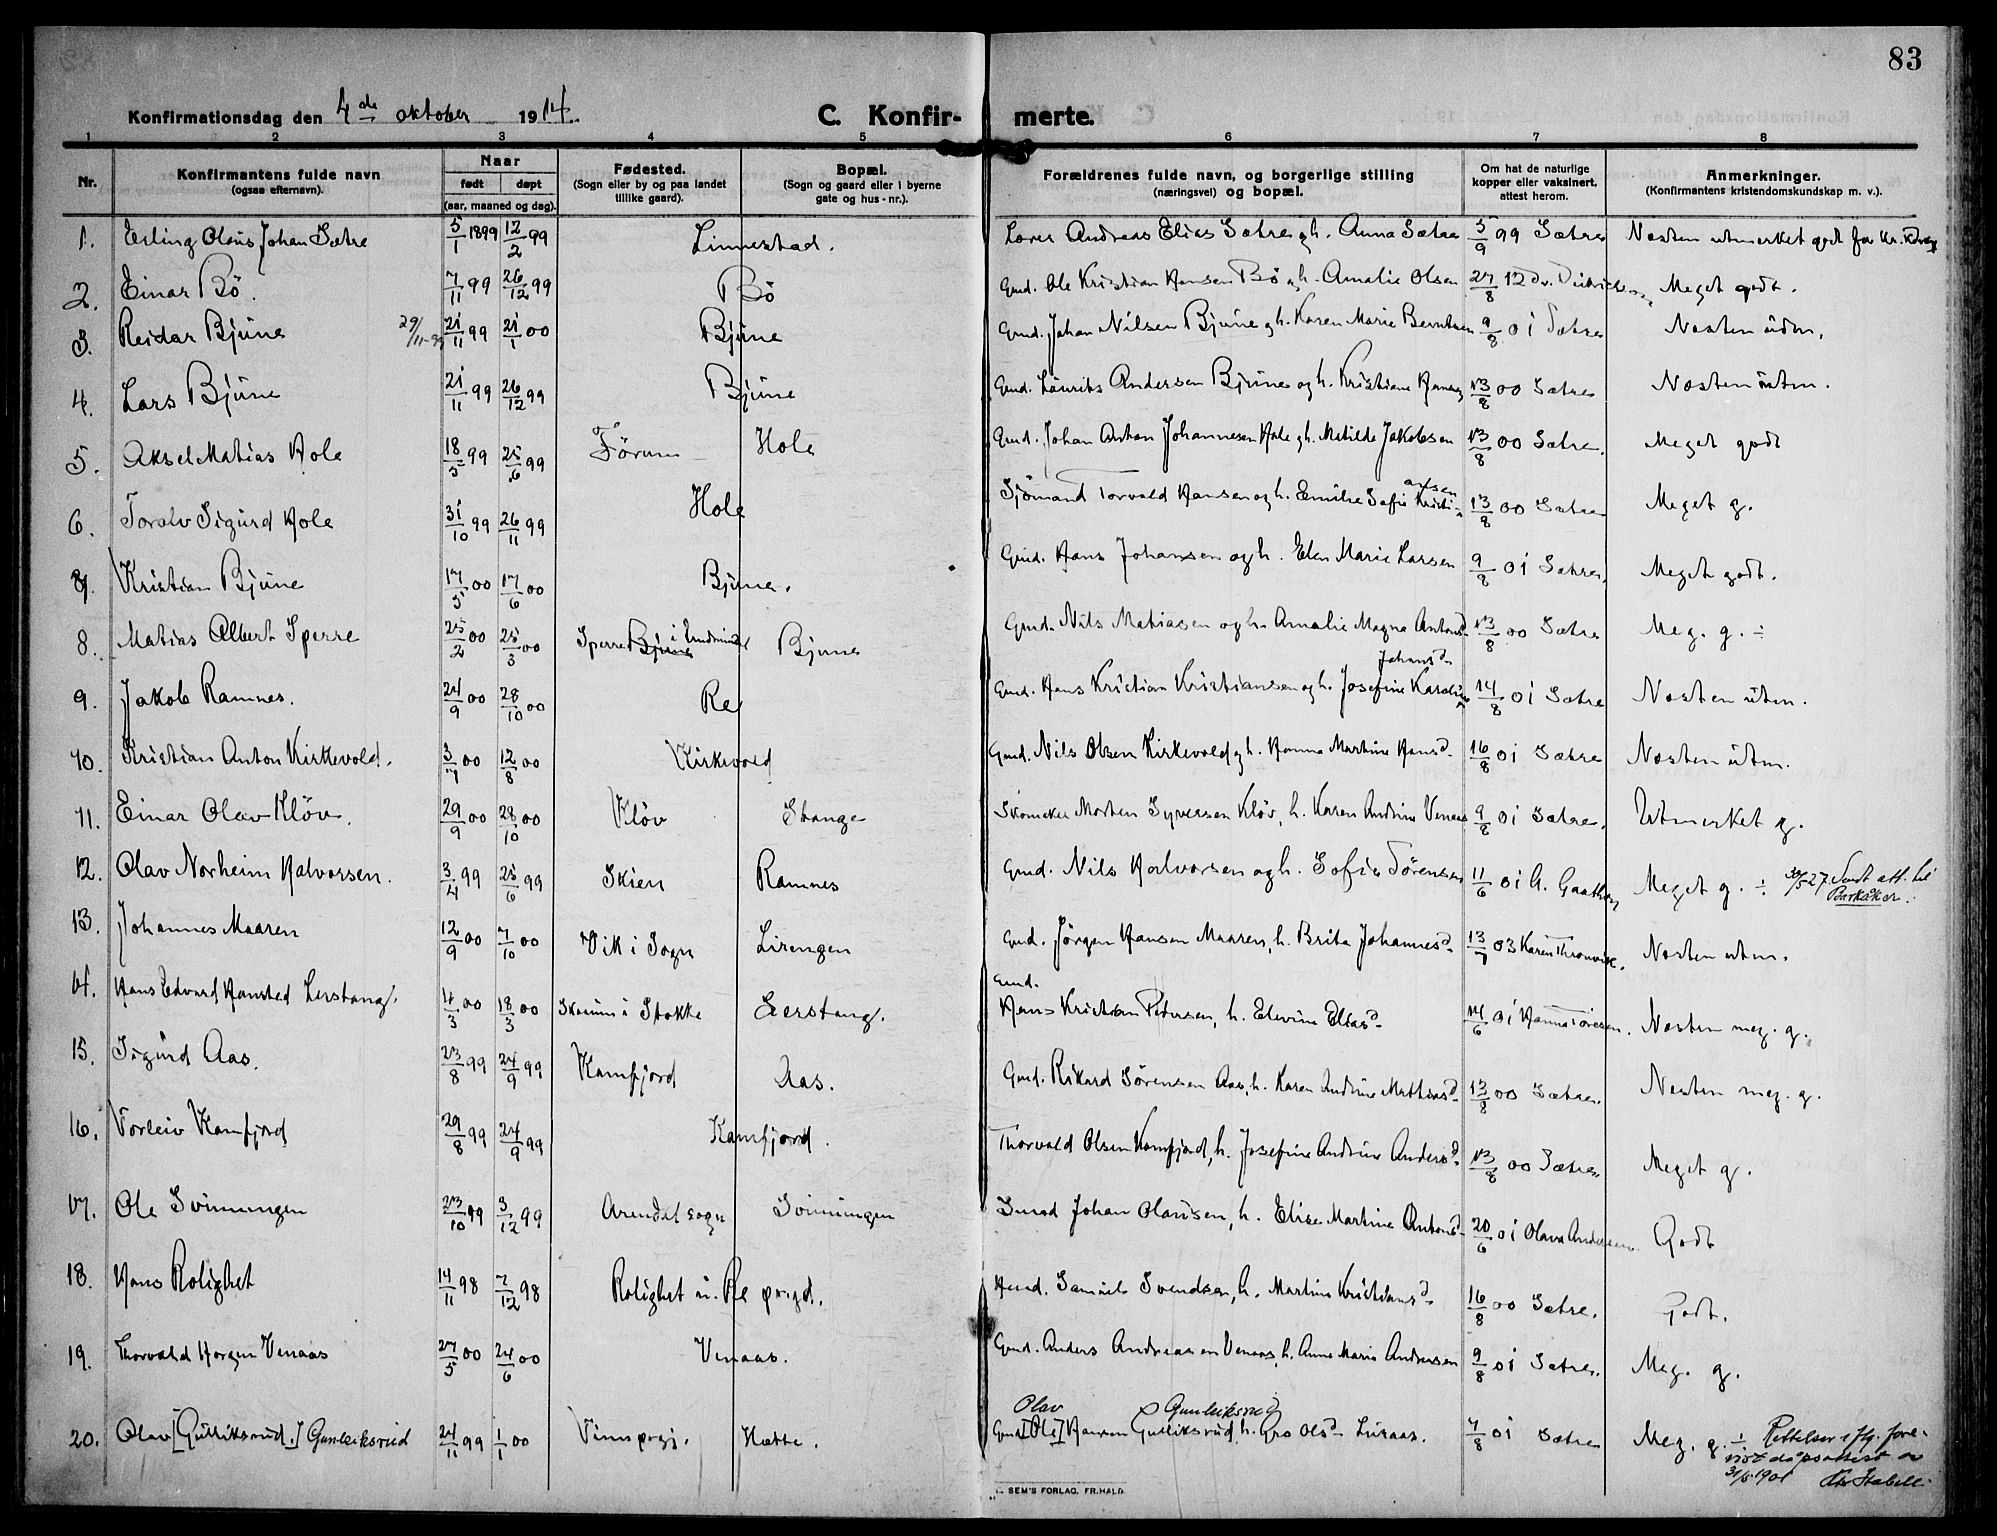 83
Konfirmationsdag den 4de oktober 1914.
C. Konfir- merte.
1 2 3 4 5 6 7 8
Nr. Konfirmantens fulde navn (ogsaa efternavn). Naar født døpt (aar, maaned og dag). Fødested. (Sogn eller by og paa landet tillike gaard). Bopæl. (Sogn og gaard eller i byerne gate og hus-nr.). Forældrenes fulde navn, og borgerlige stilling (næringsvei) og bopæl. Om hat de naturlige kopper eller vaksinert, attest herom. Anmerkninger. (Konfirmantens kristendomskundskap m. v.).
1. Erling Olaus Johan Sætre 5/1 1899 12/2 99 Linnestad. Lærer Andreas Elias Sætre og h. Anna Sætre 5/9 99 Sætre Næsten utmerket godt for kr.
2. Einar Bö. 7/11 99 26/12 99 Bö Gmd. Ole Kristian Hansen Bö og h. Amalie Olsen 27/8 12 Meget godt.
3. Reidar Bjüne 29/11-99 21/11 99 21/1 00 Bjüne Gmd. Johan Nilsen Bjüne og h. Karen Marie Berntsen 9/8 01 Sætre Næsten ütm.
4. Lars Bjüne 21/11 99 26/12 99 Bjüne Gmd. Laurits Andersen Bjüne og h. Kristiane Hansen 13/8 00 Sætre Næsten ütm.
5. Aksel Matias Hole 18/5 99 25/6 99 Förum Hole Gmd. Johan Anton Johannesen Hole og h. Matilde Jakobsen 13/8 00 Sætre. Meget godt
6. Toralv Sigurd Hole 31/10 99 26/11 99 Hole Sjömand Torvald Hansen og h. Emilie Sofie Kristiansen 13/8 00 Sætre Meget g.
7. Kristian Bjüne 17/5 00 17/6 00 Bjüne. Gmd. Hans Johansen og h. Elen Marie Larsen 9/8 01 Sætre. Meget godt.
8. Matias Albert Sperre 25/2 00 25/3 00 Sperre i Bjüne Gmd. Nils Matiasen og h. Amalie Magna Antonsd 13/8 00 Sætre Meg. g. ÷
9. Jakob Ramnes. 24/9 00 28/10 00 Re Gmd. Hans Kristian Kristiansen og h. Josefine Karoline Johansd 14/8 01 Sætre Næsten ütm.
10. Kristian Anton Kirkevold. 3/7 00 12/8 00 Kirkevold Gmd. Nils Olsen Kirkevold og h. Hanna Martine Hansd 16/8 01 Sætre Næsten ütm.
11. Einar Olav Klöv. 29/9 00 28/10 00 Klöv Stange Skomaker Morten Syversen Klöv, h. Karen Andrine Venaas 9/8 01 Sætre. Utmerket g.
12. Olav Norheim Halvorsen. 3/4 99 25/6 99 Skien Ramnes Gmd. Nils Halvorsen og h. Sofie Sörensen 11/6 01 Meget g. ÷ 30/5 27 Sendt att. til Barkåker.
13. Johannes Maaren 12/9 00 7/10 00 Vik i Sogn Lirengen Gmd. Jörgen Hansen Maaren, h. Brita Johannesd 13/7 03 Næsten utm.
14. Hans Edvard Hansted Lerstang. 4/3 00 18/3 00 Skaum i Stokke Leerstang. Gmd. Hans Kristian Petersen, h. Edvine Eliasd 14/6 01 Hanna Toresen. Næsten meg. g.
15. Sigurd Aas. 23/8 99 24/9 99 Kamfjord Aas. Gmd. Rikard Sörensen Aas, h. Karen Andrine Mathiasd 13/8 00 Sætre. Næsten meg. g.
16. Torleiv Kamfjord 29/8 99 24/9 99 Kamfjord. Thorvald Olsen Kamfjord, h. Josefine Andrine Andersd 13/8 00 Sætre. Meget g.
17. Ole Svinningen 23/10 99 3/12 99 Arendal sogn Svinningen Smed Johan Olausen, h. Elise Martine Antonsd 20/6 01 Olava Andersen. Godt
18. Hans Rolighet 14/11 98 7/12 98 Rolighet u. Re prgd. Hmd. Samuel Svendsen, h. Martine Kristiansd 16/8 00 Sætre. Godt.
19. Thorvald Horgen Venaas 27/5 00 24/6 00 Venaas. Gmd. Anders Andreassen Venaas, h. Anne Marie Andersen 9/8 01 Sætre. Meg. g.
20. Olav [Gulliksrud.] Gunleiksrüd 24/11 99 1/1 00 Vinns prgj. Hætte. Gmd [Ole] Olav Hansen Gulliksrud Gunleiksrud h. Gro Olsd Luraas. 7/8 01 Sætre Meg. g. ÷ Rettelser iflg. forevist dåpsattest av 31/5 1901
SEM'S FORLAG. FR.HALD.